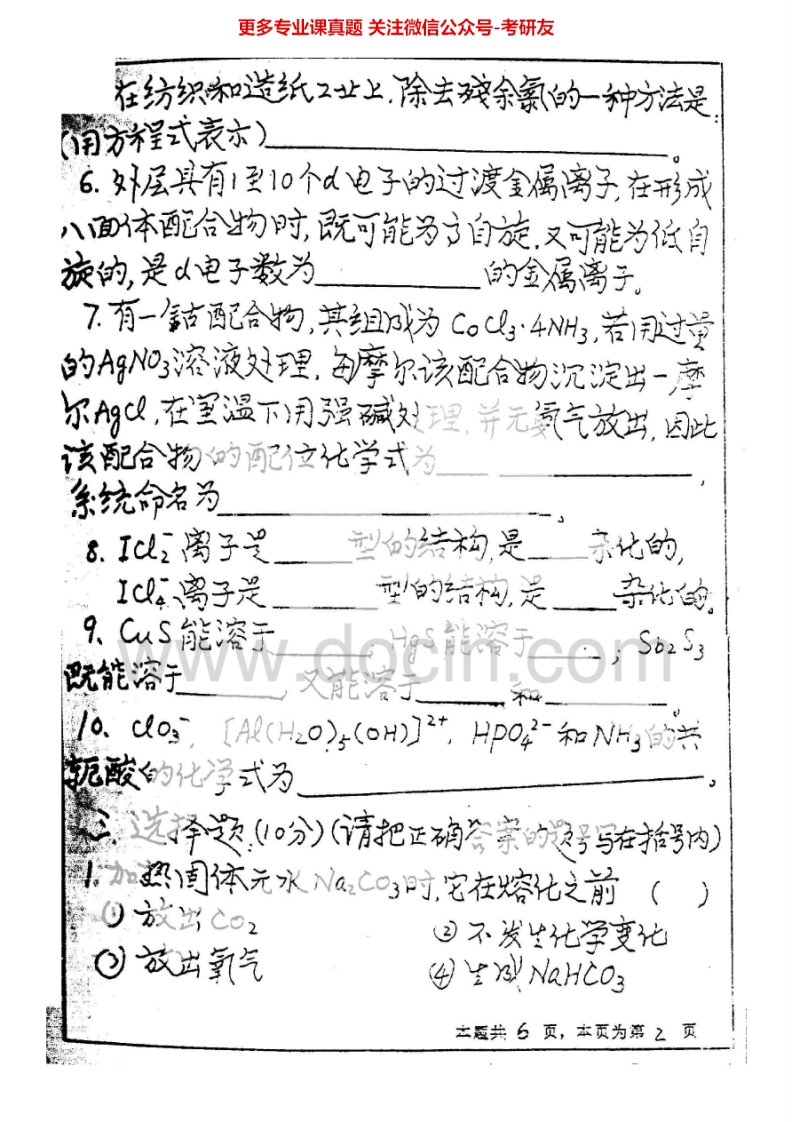 更多专业课真题 关注微信公众号-考研友
在纺织和造纸工业上,除去残余氯的一种方法是:
(用方程式表示)____________。
6. 外层具有1至10个d电子的过渡金属离子,在形成
八面体配合物时,既可能为高自旋,又可能为低自
旋的,是d电子数为________的金属离子。
7. 有一钴配合物,其组成为CoCl₃·4NH₃,若用过量
的AgNO₃溶液处理,每摩尔该配合物沉淀出一摩
尔AgCl,在室温下用强碱处理,并无氨气放出,因此
该配合物的配位化学式为____________,
系统命名为____________。
8. ICl₂⁻离子是____型的结构,是___杂化的,
ICl₄⁻离子是____型的结构,是___杂化的。
9. CuS能溶于____,HgS能溶于____;Sb₂S₃
既能溶于____,又能溶于____和____。
10. ClO₃⁻,[Al(H₂O)₅(OH)]²⁺,HPO₄²⁻和NH₃的共
轭酸的化学式为____________。
三.选择题.(10分)(请把正确答案的题号写在括号内)
1. 加热固体无水Na₂CO₃时,它在熔化之前 ( )
① 放出CO₂ ② 不发生化学变化
③ 放出氧气 ④ 生成NaHCO₃
www.docin.com
本题共 6 页,本页为第 2 页